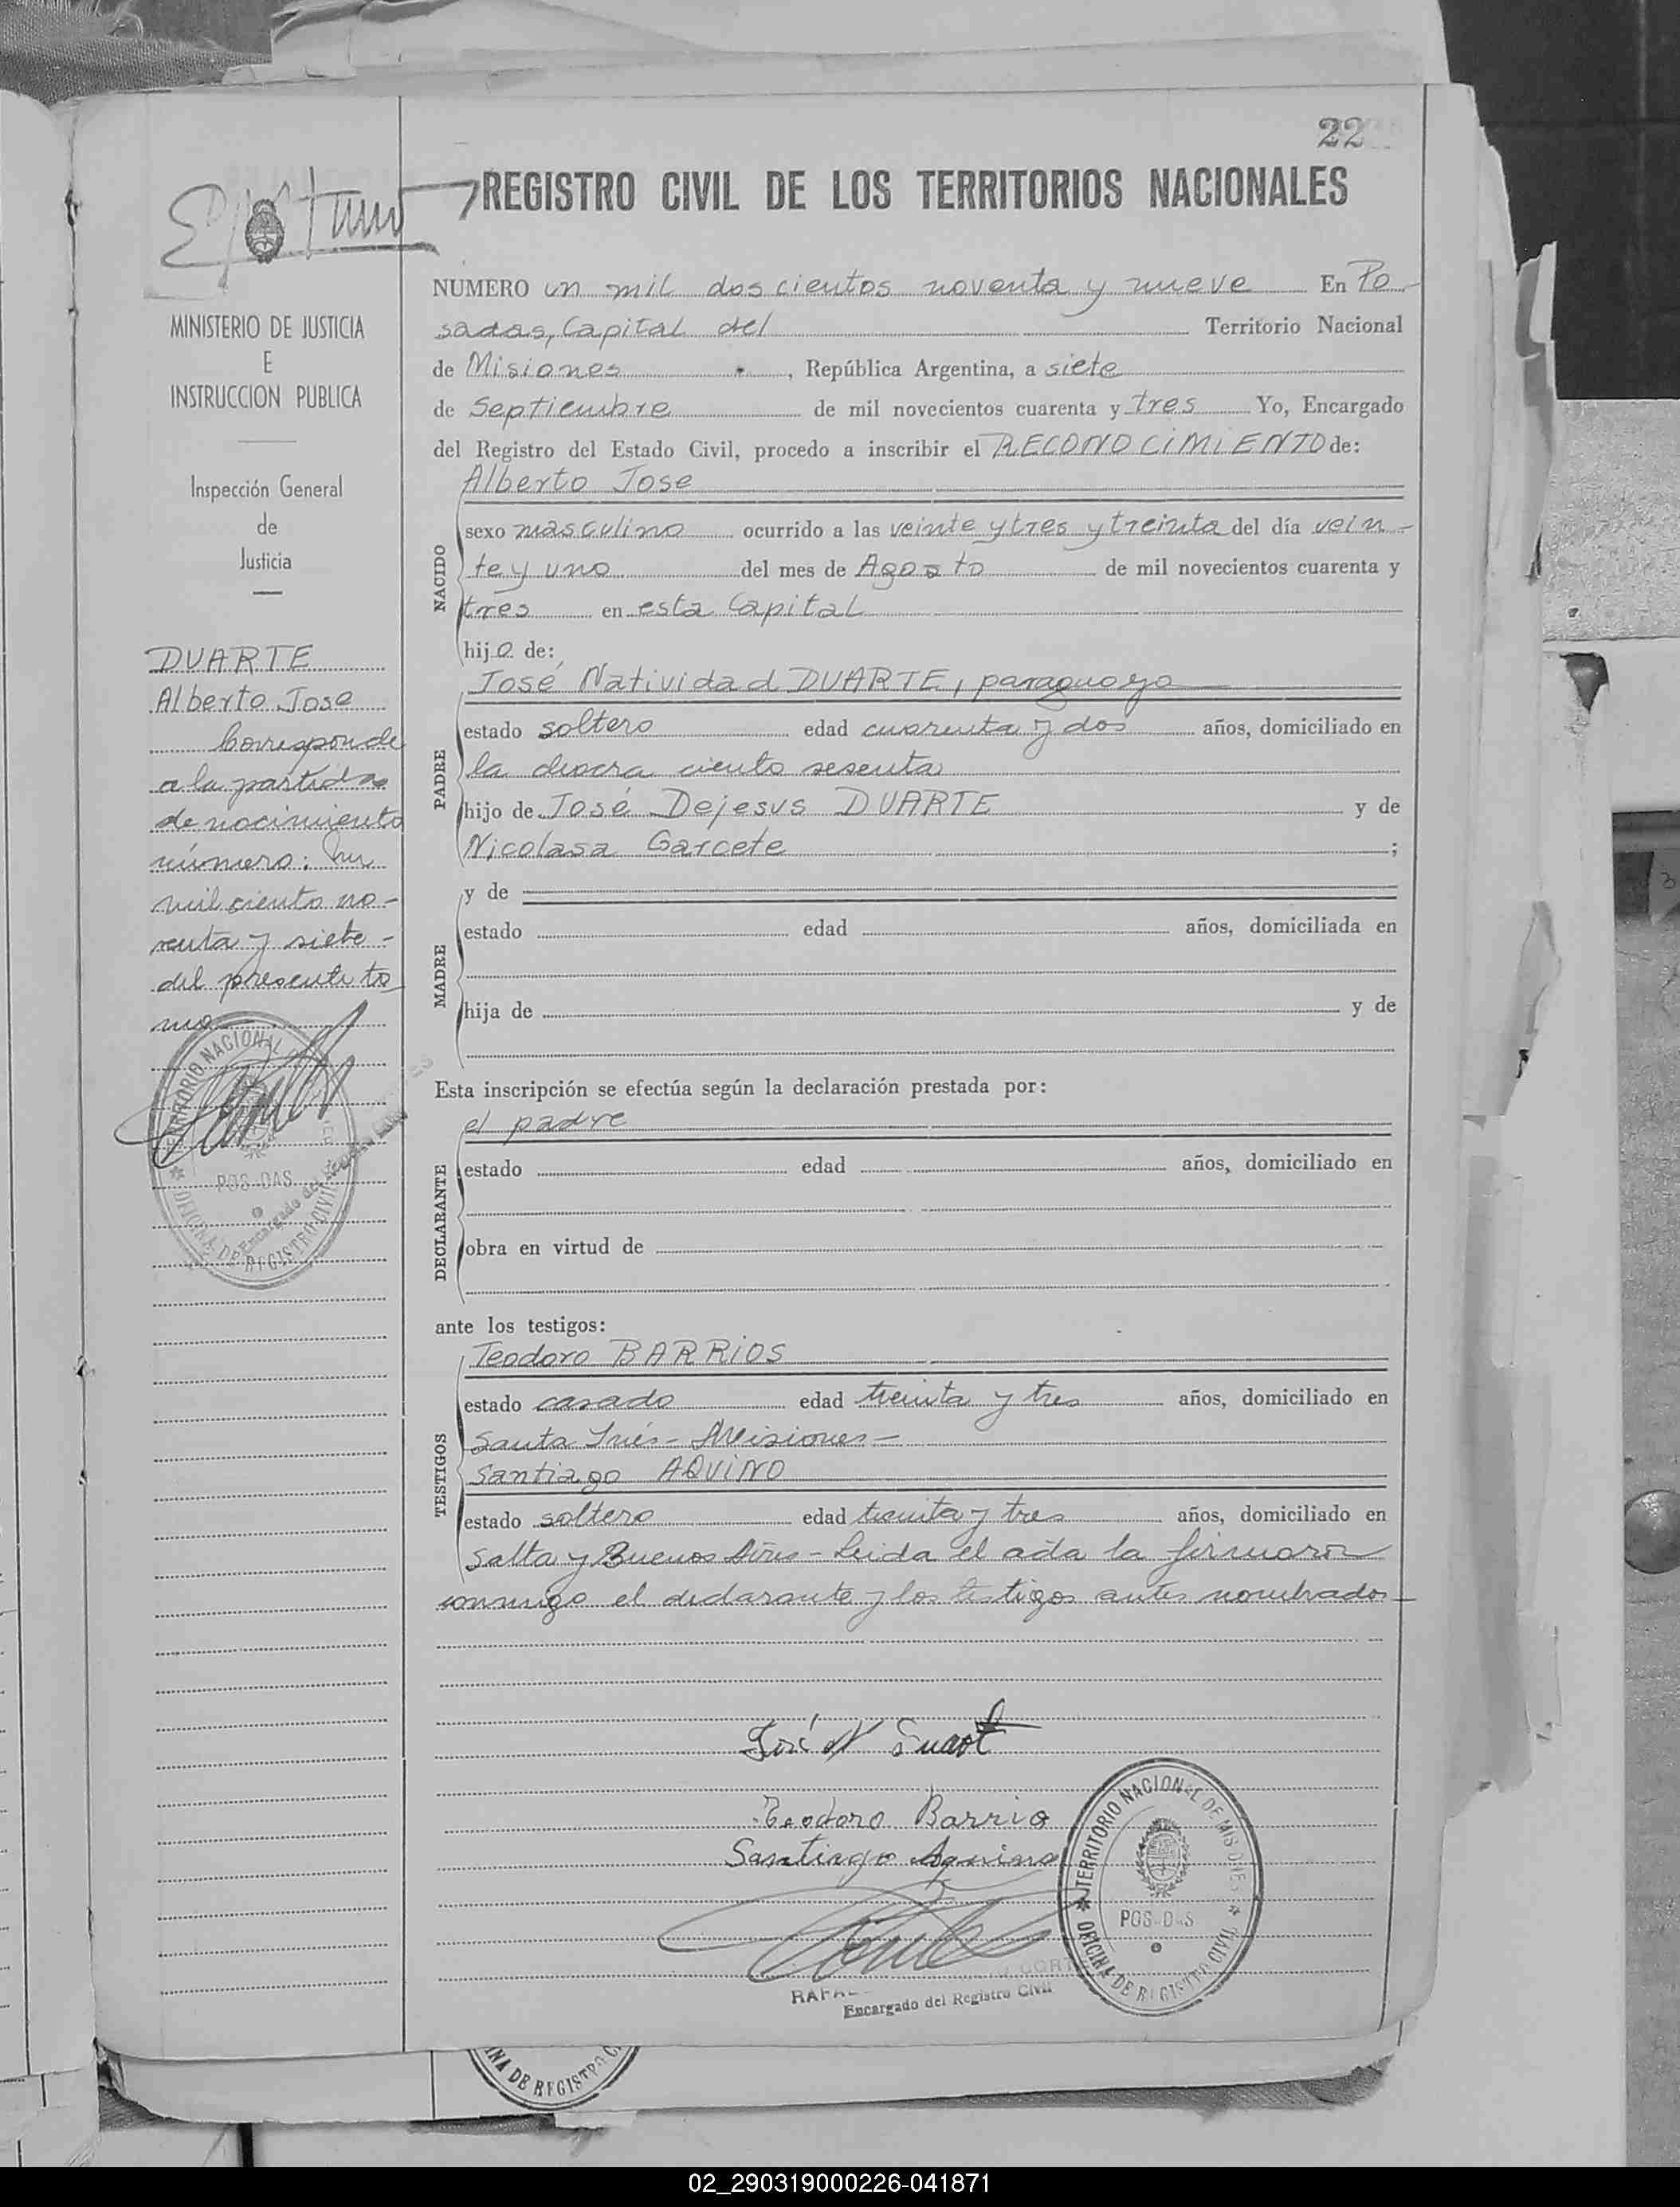 22
REGISTRO CIVIL DE LOS TERRITORIOS NACIONALES
MINISTERIO DE JUSTICIA
E
INSTRUCCION PUBLICA
Inspección General
de
Justicia
DUARTE
Alberto Jose
Corresponde
a la partida
de nacimiento
número: un
mil ciento no-
venta y siete-
del presente to-
mo
TERRITORIO NACIONAL
POS DAS
OFICINA DE REGISTRO CIVIL
Encargado del
NUMERO un mil doscientos noventa y nueve En Po-
sadas, Capital del Territorio Nacional
de Misiones, República Argentina, a siete
de Septiembre de mil novecientos cuarenta y tres Yo, Encargado
del Registro del Estado Civil, procedo a inscribir el RECONOCIMIENTO de:
Alberto Jose
NACIDO
sexo masculino ocurrido a las veinte y tres y treinta del día vein-
te y uno del mes de Agosto de mil novecientos cuarenta y
tres en esta Capital
hijo de:
PADRE
José Natividad DUARTE, paraguayo
estado soltero edad cuarenta y dos años, domiciliado en
la chacra ciento sesenta
hijo de José Dejesus DUARTE y de
Nicolasa Garcete ;
MADRE
y de
estado edad años, domiciliada en
hija de y de
Esta inscripción se efectúa según la declaración prestada por:
el padre
DECLARANTE
estado edad años, domiciliado en
obra en virtud de
ante los testigos:
TESTIGOS
Teodoro BARRIOS
estado casado edad treinta y tres años, domiciliado en
Santa Inés - Misiones -
Santiago AQUINO
estado soltero edad treinta y tres años, domiciliado en
Salta y Buenos Aires - Leida el acta la firmaron
conmigo el declarante y los testigos antes nombrados-
José N Duart
Teodoro Barrio
Santiago Aquino
TERRITORIO NACIONAL DE MISIONES
POS D S
OFICINA DE REGISTRO CIVIL
Encargado del Registro Civil
INA DE REGISTRO C
02_290319000226-041871